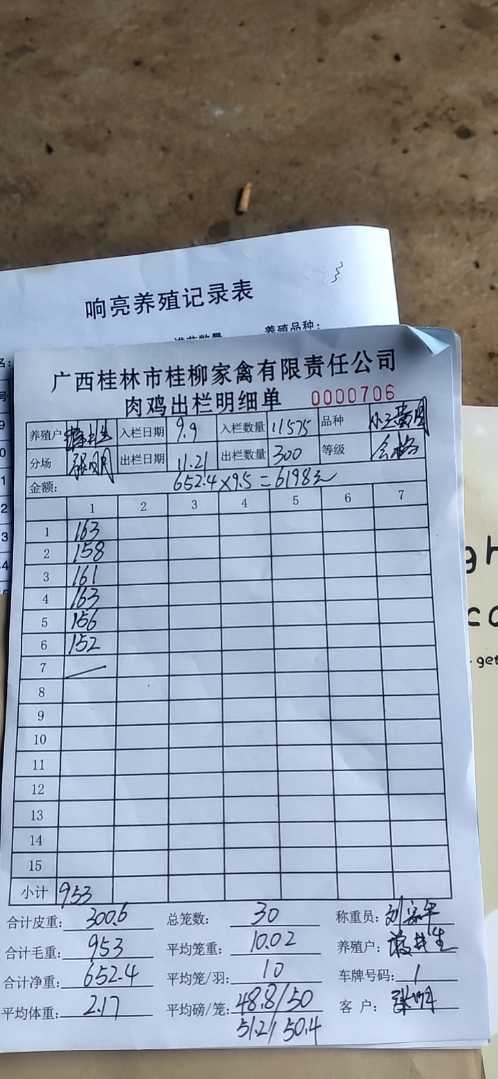 响亮养殖记录表
养殖品种：
广西桂林市桂柳家禽有限责任公司
肉鸡出栏明细单 0000706
养殖户 入栏日期 9.9 入栏数量 11575 品种
分场 出栏日期 11.21 出栏数量 300 等级 合格
金额： 652.4×9.5=6198元
1 2 3 4 5 6 7
1 163
2 158
3 161
4 163
5 156
6 152
7
8
9
10
11
12
13
14
15
小计 953
合计皮重： 300.6 总笼数： 30 称重员：
合计毛重： 953 平均笼重： 10.02 养殖户：
合计净重： 652.4 平均笼/羽： 10 车牌号码： /
平均体重： 2.17 平均磅/笼： 48.8/50 客户：
51.2/50.4